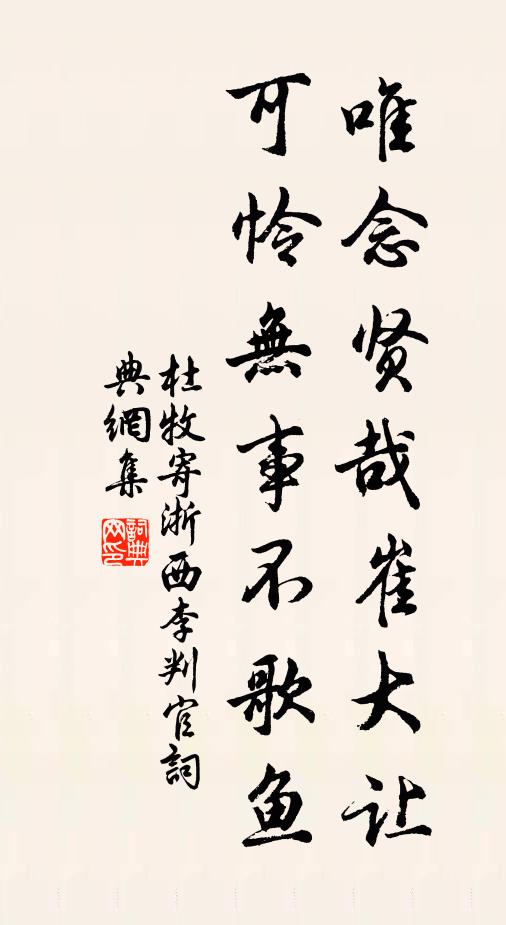 唯念贤哉崔大让
可怜無事不歌鱼
杜牧寄浙西李判官詞
典網集
詞典
网印